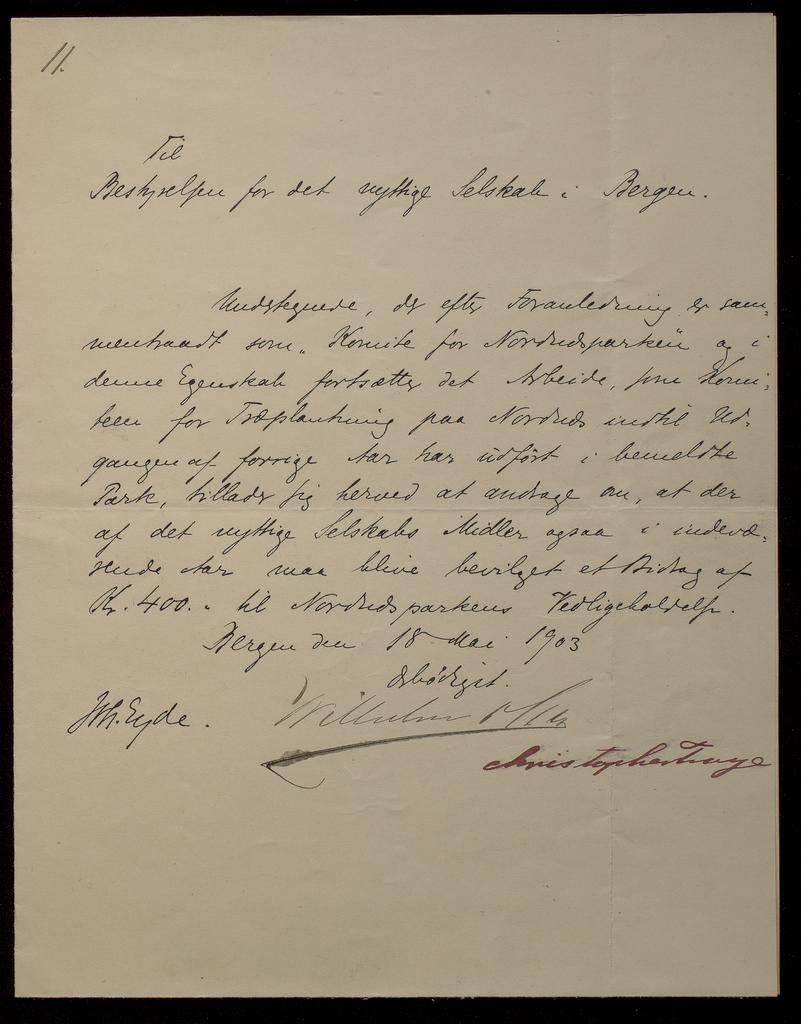 11.
Til
Bestyrelsen for det nyttige Selskab i Bergen.
Undertegnede, der efter Foranledning er sam-
mentraadt som "Komite for Nordnesparken" og i
denne Egenskab fortsætter det Arbeide, som Komi-
teen for Træplantning paa Nordnes indtil Ud-
gangen af forrige Aar har udført i bemeldte
Park, tillader sig herved at andrage om, at der
af det nyttige Selskabs Midler ogsaa i indevæ-
rende Aar maa blive bevilget et Bidrag af
Kr. 400.- til Nordnesparkens Vedligeholdelse.
Bergen den 18 Mai 1903
Ærbødigst.
Joh. Eyde. Wilhelm
Christopher